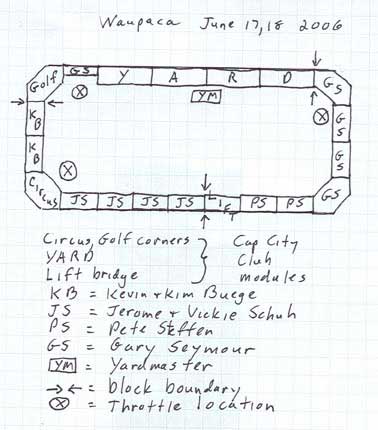 Waupaca June 17,18 2006
Golf GS Y A R D GS
YM
KB GS
KB GS
Circus JS JS JS JS LIFT PS PS GS
Circus, Golf corners
YARD
Lift bridge
Cap City
Club
modules
KB = Kevin + Kim Buege
JS = Jerome + Vickie Schuh
PS = Pete Steffen
GS = Gary Seymour
YM = Yardmaster
→← = block boundary
Ⓧ = Throttle location